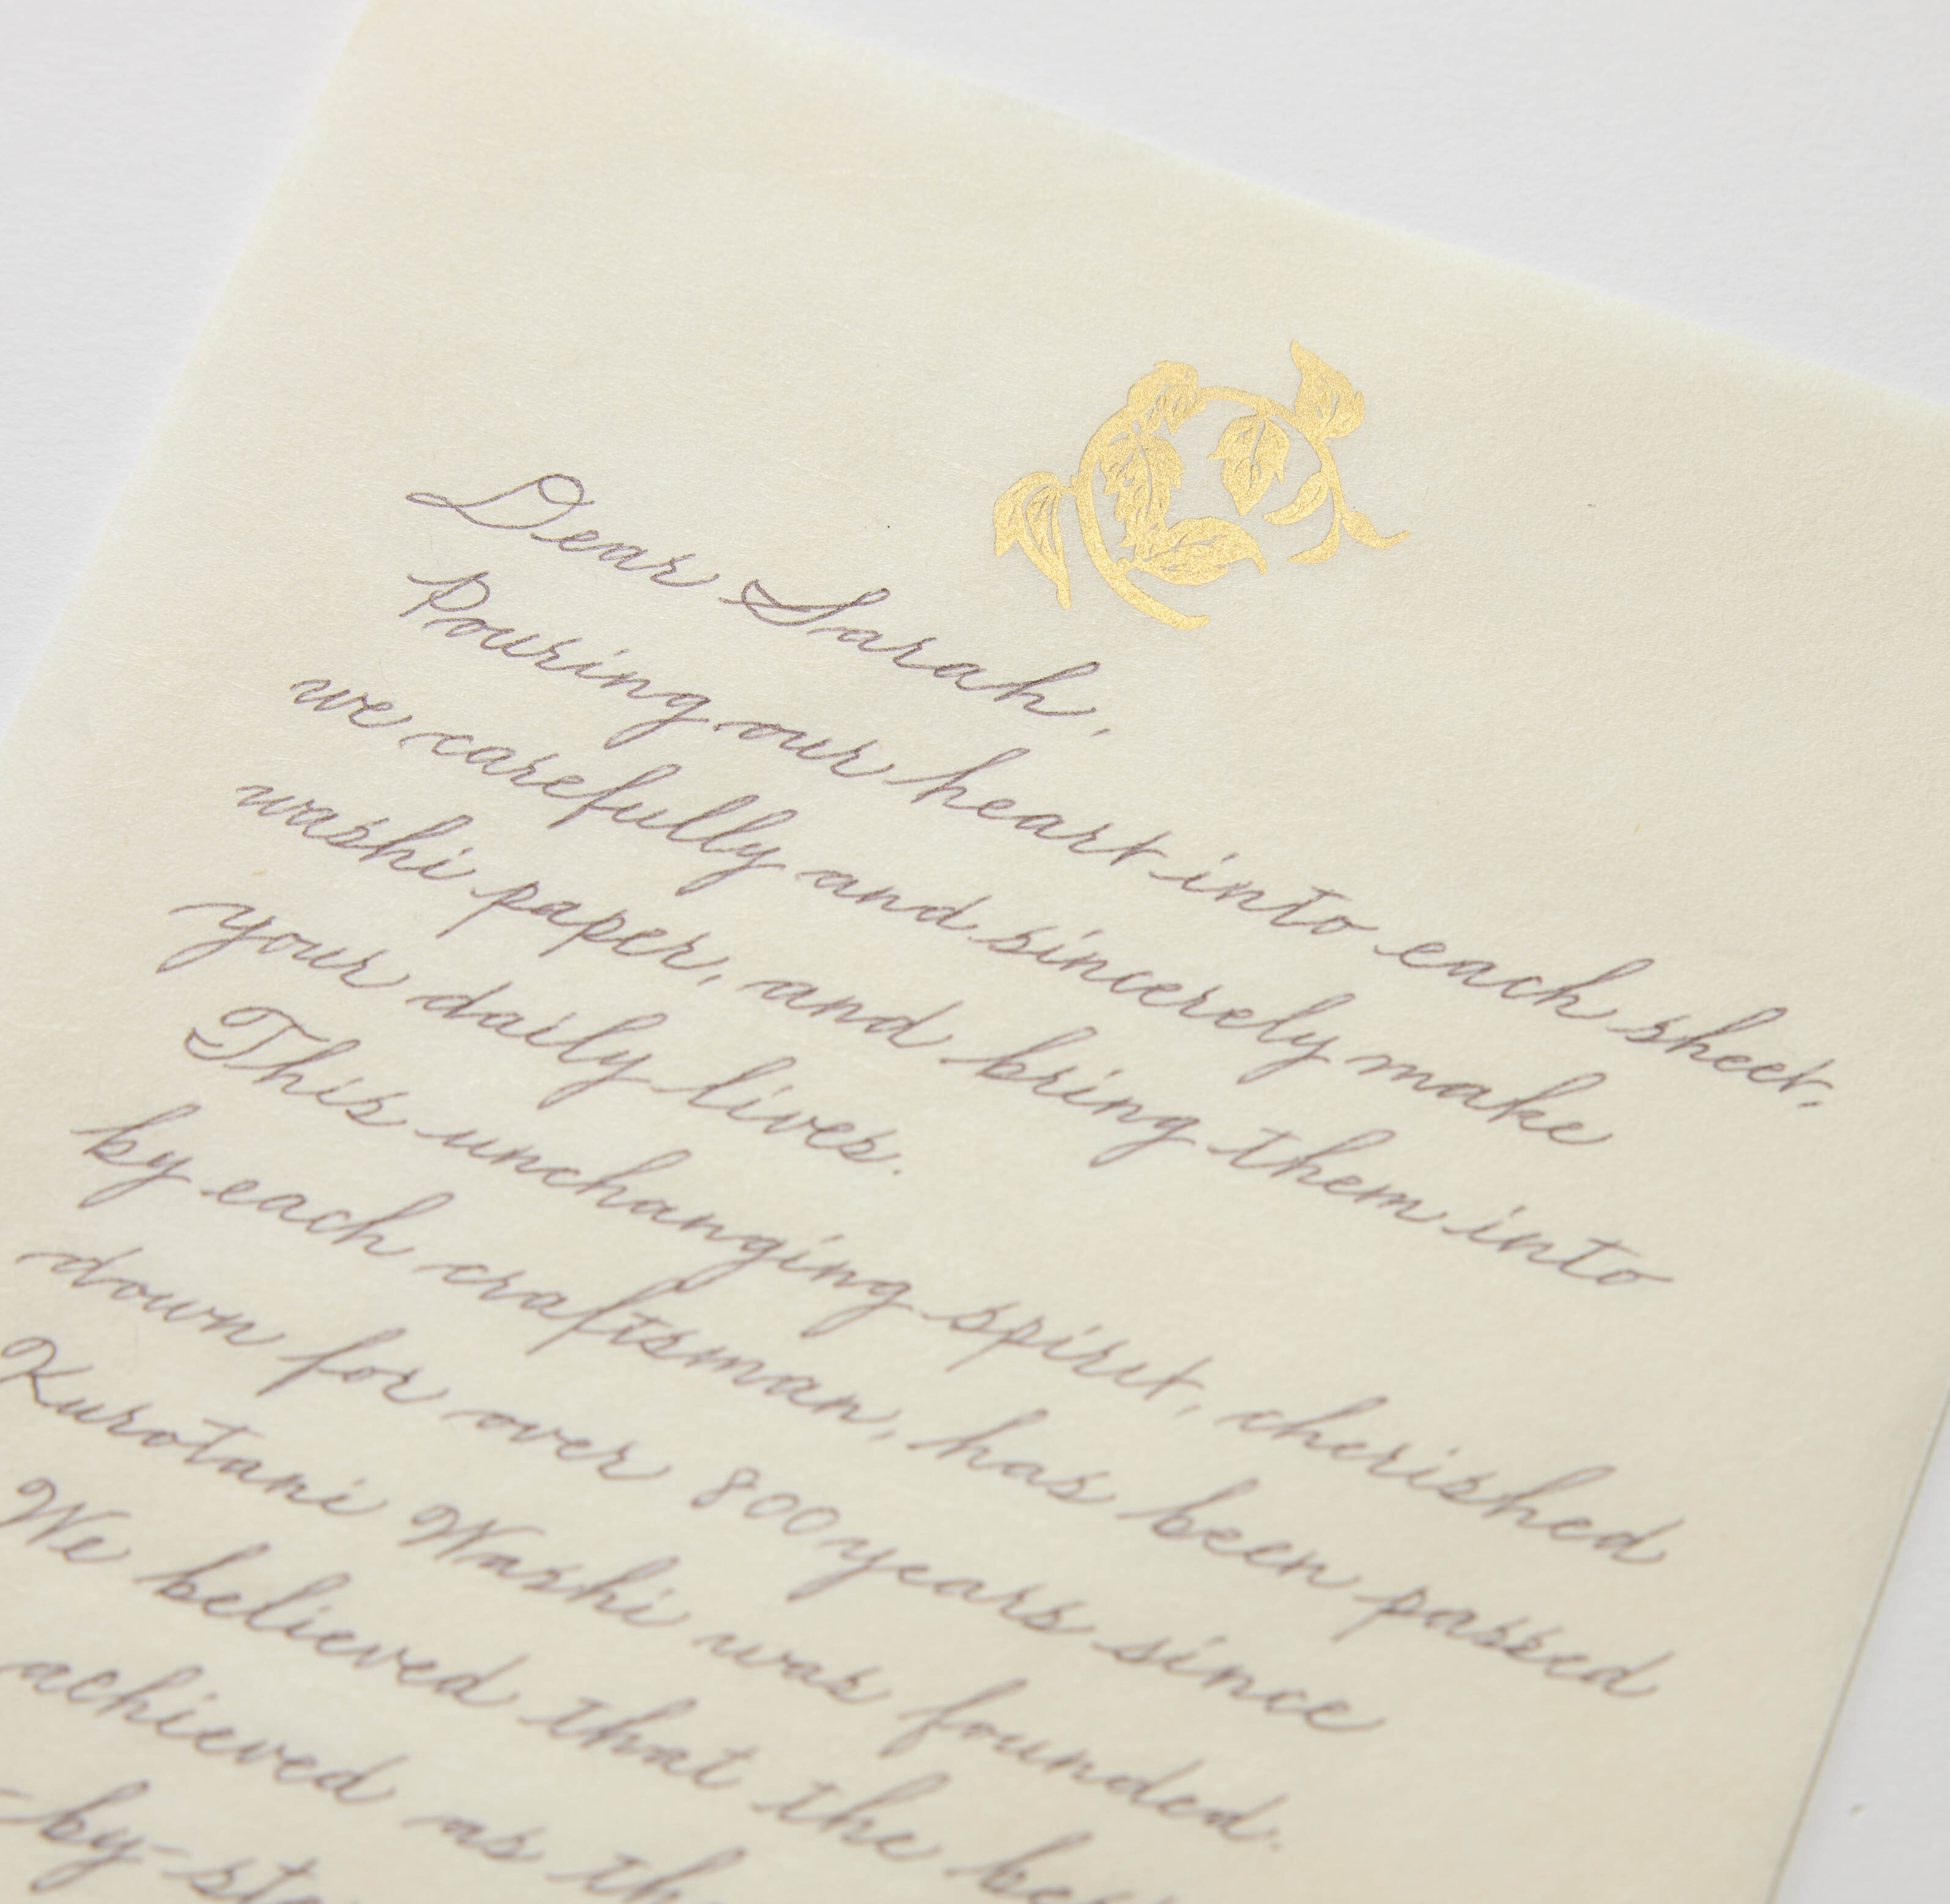 Dear Sarah,
Pouring our heart into each sheet,
we carefully and sincerely make
washi paper, and bring them into
your daily lives.
This unchanging spirit, cherished
by each craftsman, has been passed
down for over 800 years since
Kurotani Washi was founded.
We believed that the
achieved as
-by-